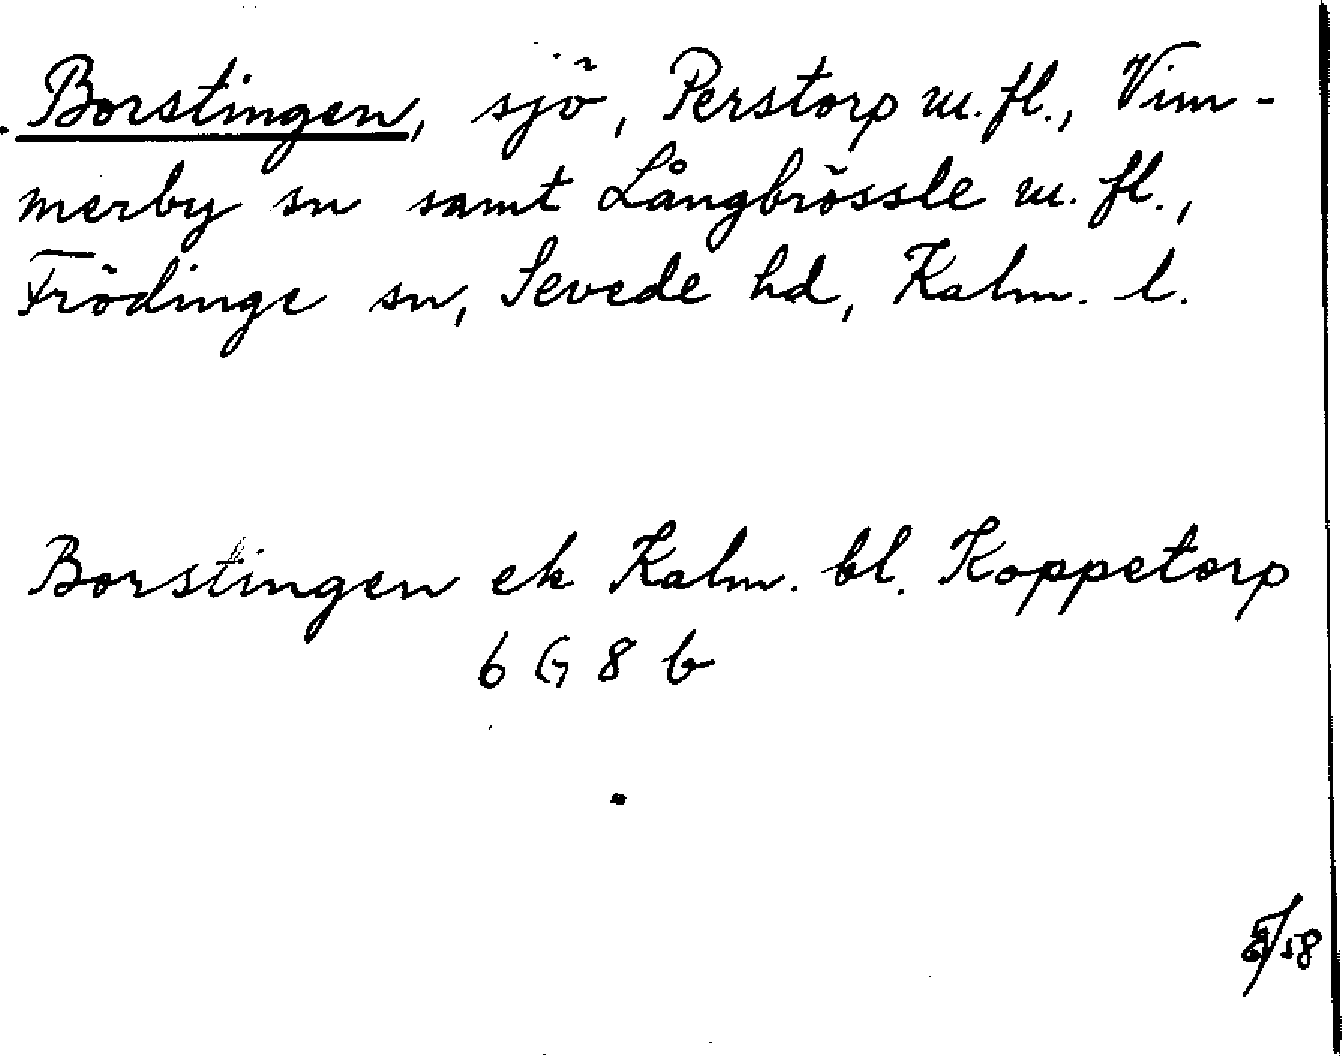 Borstingen, sjö, Perstorp m.fl., Vim-
merby sn samt Långbrössle m.fl.,
Frödinge sn, Sevede hd, Kalm. l.
Borstingen ek Kalm. bl. Koppetorp
6 G 8 b